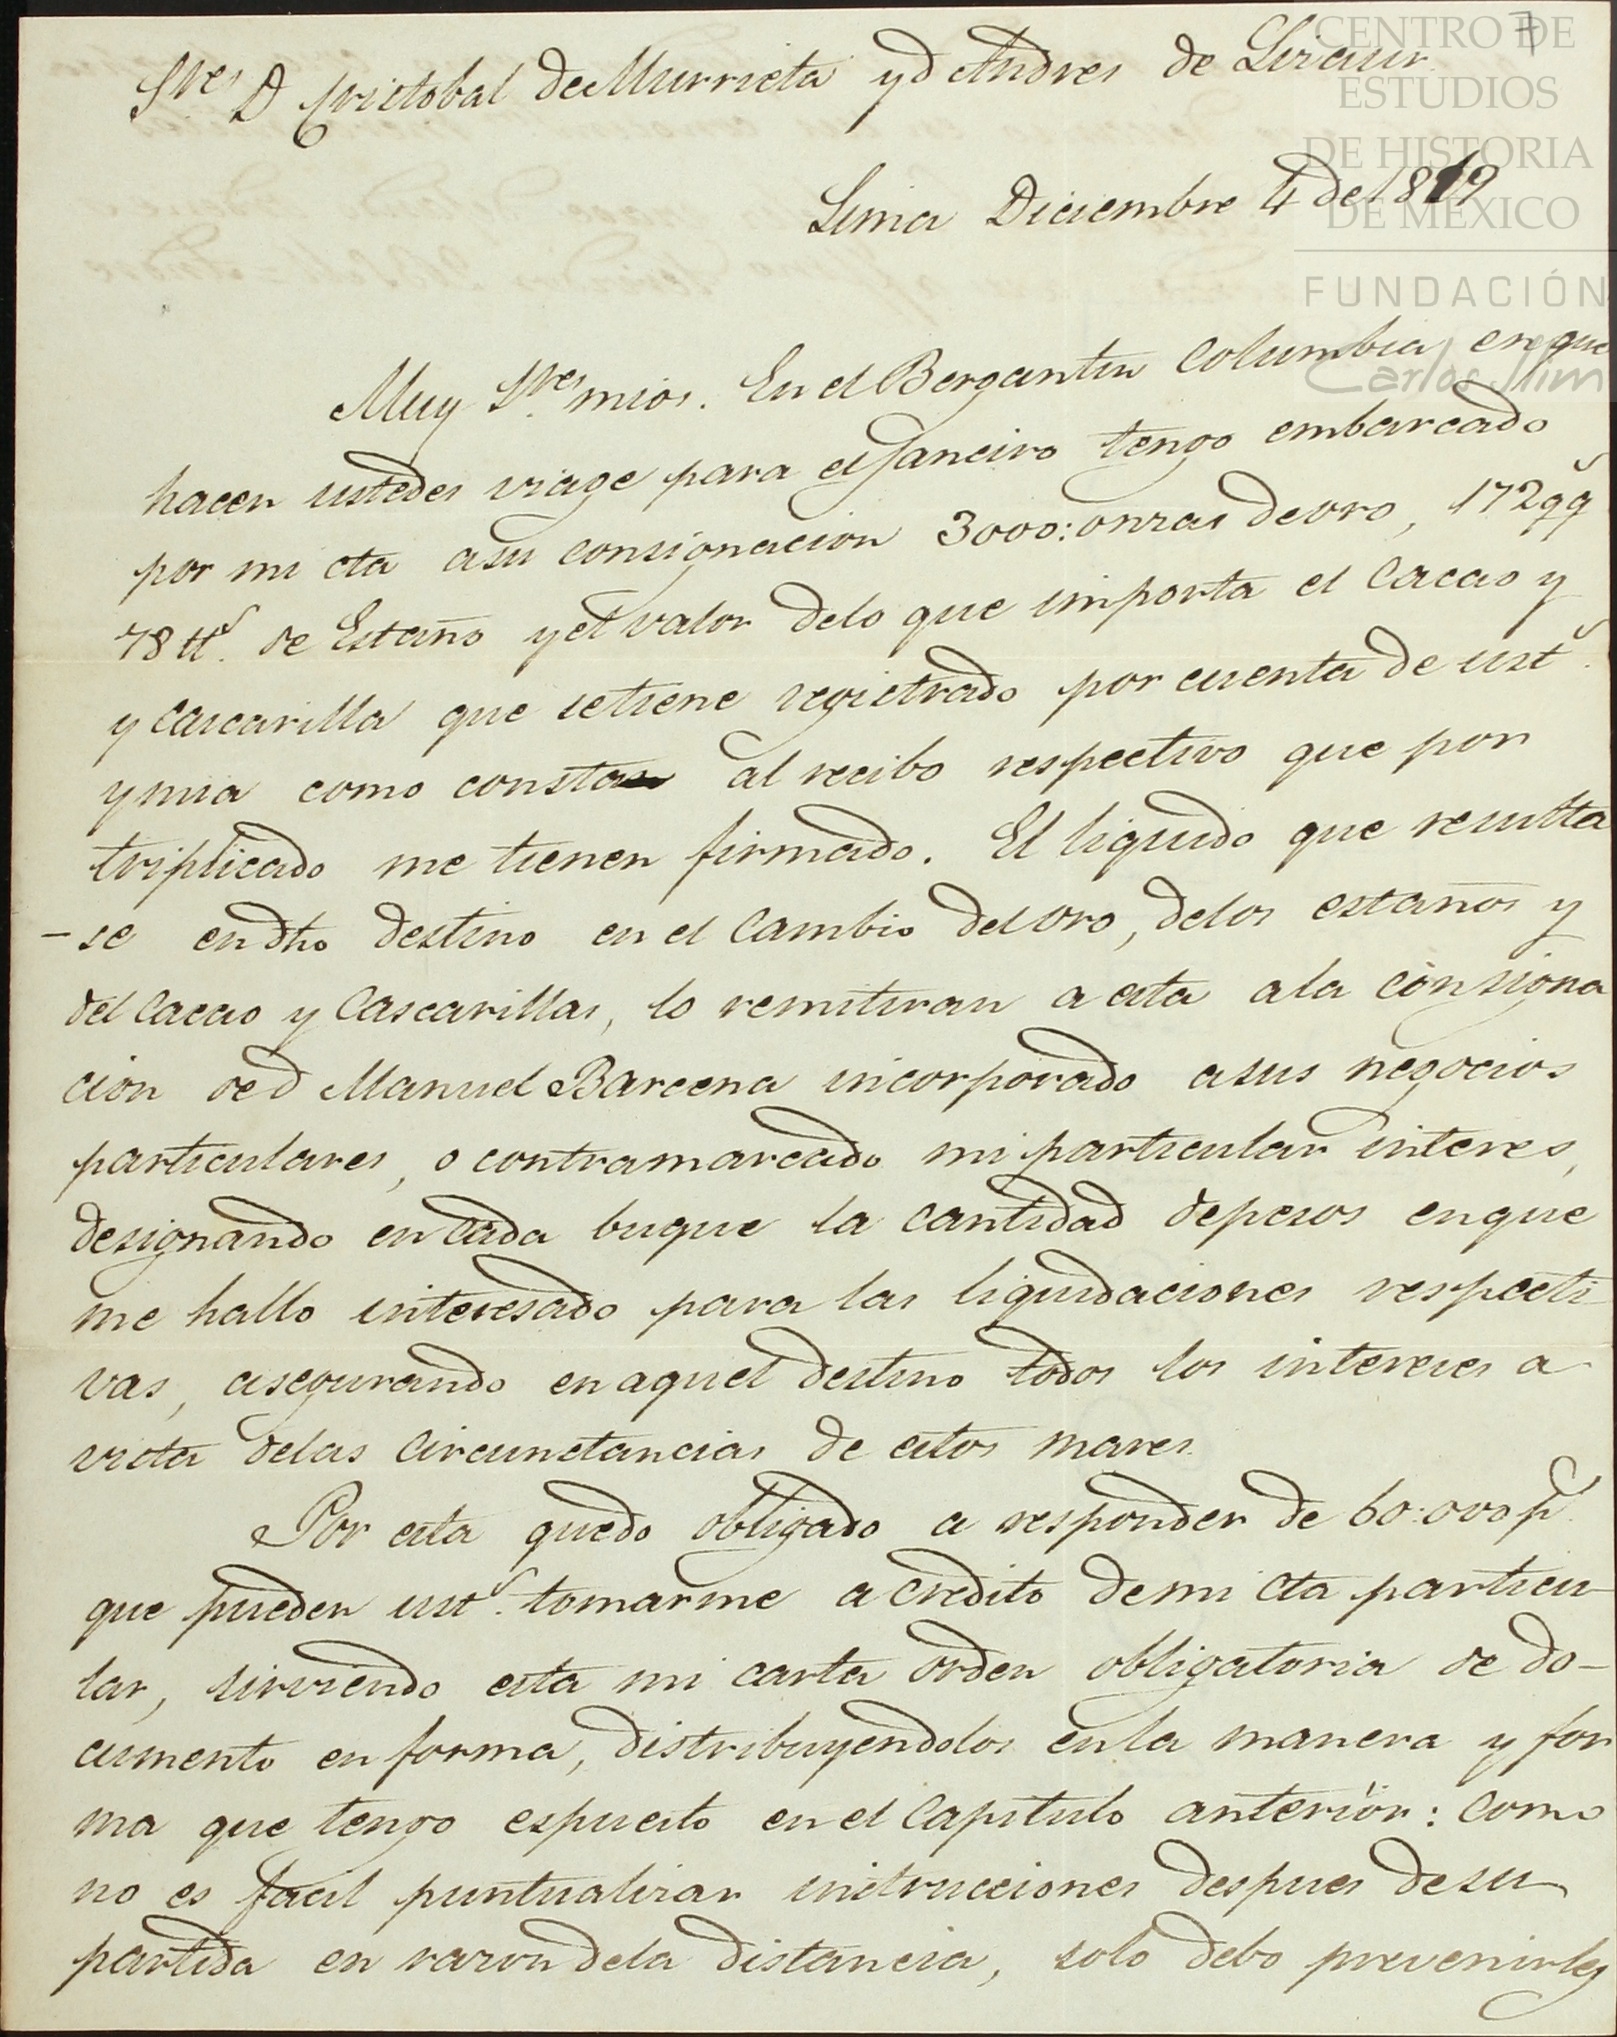 7
CENTRO DE
ESTUDIOS
DE HISTORIA
DE MÉXICO
FUNDACIÓN
Carlos Slim
Sres D Cristobal de Murrieta y d Andres de
Lima Diciembre 4 de 1819
Muy Sres mios. En el Bergantin Columbia en que
hacen ustedes viage para el Janeiro tengo embarcado
por mi cta a su consignacion 3000: onzas de oro, 172 qq
78 tt.s de Estaño y el valor de lo que importa el Cacao y
y Cascarilla que se tiene registrado por cuenta de ust.s
y mia como consta al recibo respectivo que por
triplicado me tienen firmado. El liquido que resulta
-se en dho destino en el Cambio del Oro, de los estaños y
del Cacao y Cascarillas, lo remitiran a esta a la consigna
cion de d Manuel Barcena incorporado a sus negocios
particulares, o contramarcado mi particular interes,
designando en cada buque la cantidad de pesos en que
me hallo interesado para las liquidaciones respecti-
vas, asegurando en aquel destino todos los intereses a
vista de las Circunstancias de estos mares.
Por esta quedo obligado a responder de 60:000 p.s
que pueden ust.s tomarme a credito de mi cta particu-
lar, sirviendo esta mi carta orden obligatoria de do-
cumento en forma, distribuyendolos en la manera y for
ma que tengo espuesto en el Capitulo anterior: Como
no es facil puntualizar instrucciones despues de su
partida en razon de la distancia, solo debo prevenirles